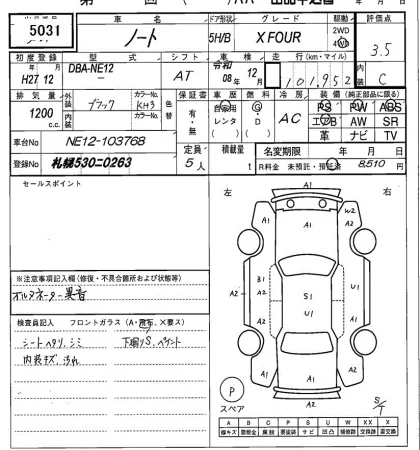 5031
車名
ノート
ドア形状
5H/B
グレード
X FOUR
駆動
2WD
4WD
評価点
3.5
C
初度登録
年 月
H27 12
型式
DBA-NE12
シフト
AT
車検
令和
08 年 12 月
走行(km・マイル)
101,952
排気量
1200
c.c.
外装
ブラック
カラーNo.
KH3
内装
カラーNo.
色替
保証書
有・無
車歴
自家用
レンタ
( )
燃料
G・D
( )
冷房
AC
装備(純正部品に限る)
PS PW ABS
エアB AW SR
革 ナビ TV
車台No
NE12-103768
登録No
札幌530ニ0263
定員
5人
積載量
t
名変期限 年 月 日
R料金 未預託・預託済 8,510 円
セールスポイント
左
右
※注意事項記入欄(修復・不具合箇所および状態等)
オルタネーター異音
検査員記入 フロントガラス(A・飛石、X要ス)
シートヘタリ、シミ
下廻りS、ペイント
内装キズ、汚れ
A1
A1
W2
A1
A1
A2
B1
A2
S1
U1
U1
A2
A2
A2
A1
A2
P
スペア
S/T
A B C P S U W XX X
線キズ 要板金 腐蝕 要塗装 サビ 凹凸 補修跡 交換跡 要交換